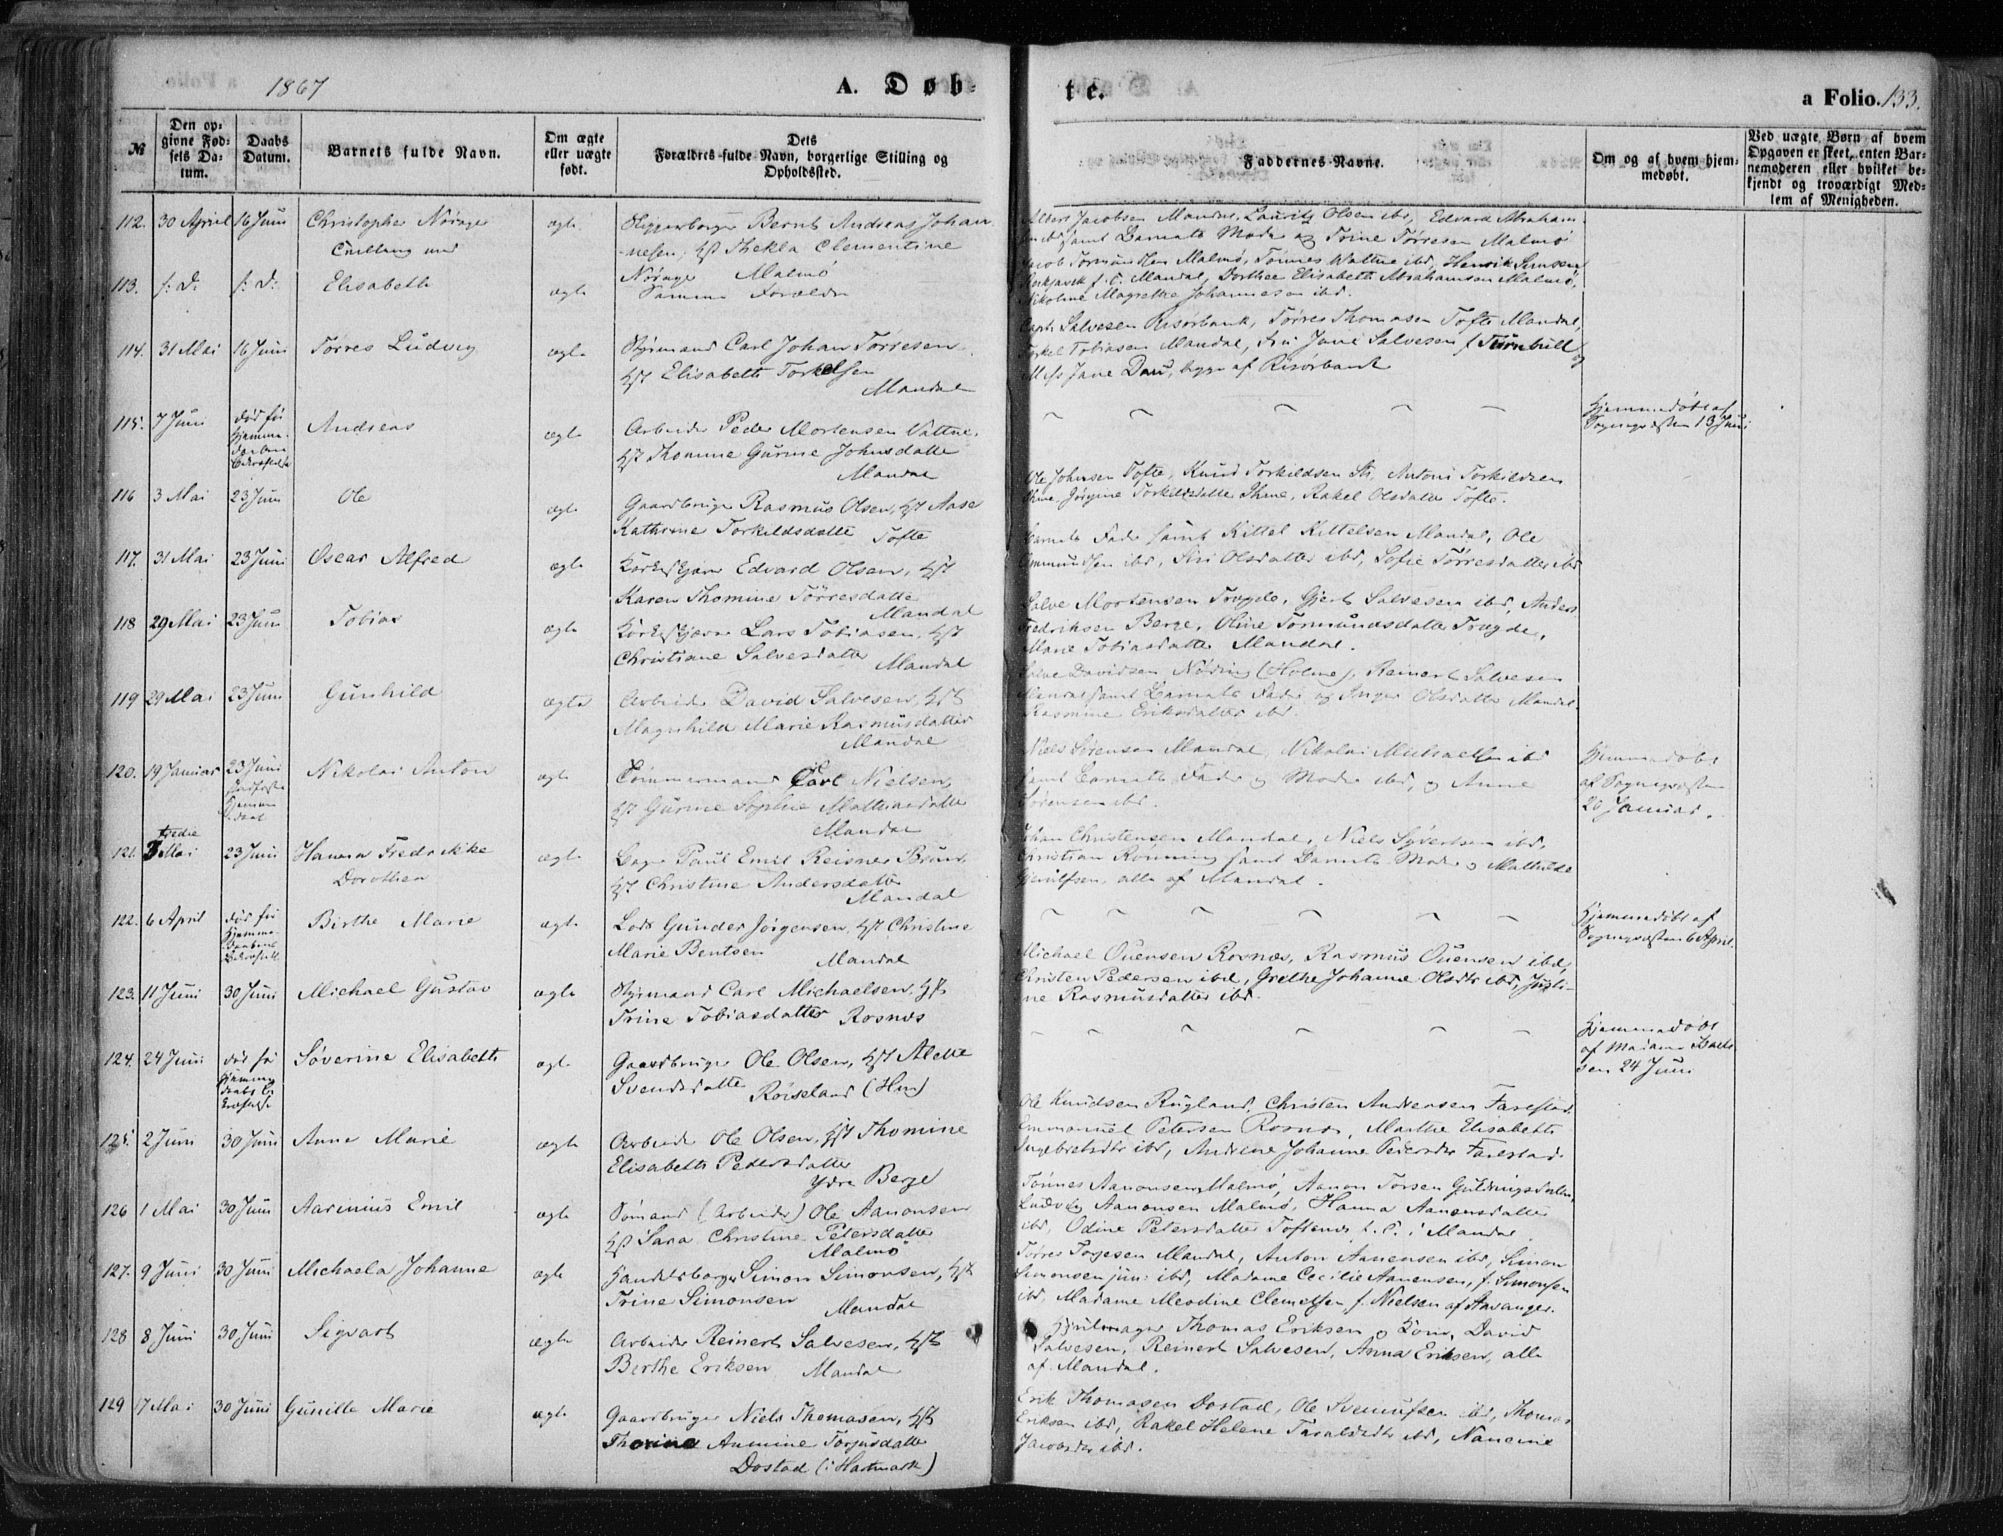 1867
A. Døb-
te.
a Folio. 133.
№
Den op-
givne Fød-
sels Da-
tum.
Daabs
Datum.
Barnets fulde Navn.
Om ægte
eller uægte
født.
Dets
Forældres fulde Navn, borgerlige Stilling og
Opholdssted.
Faddernes Navne.
Om og af hvem hjem-
medøbt.
Ved uægte Børn af hvem
Opgaven er skeet, enten Bar-
nemoderen eller hvilket be-
kjendt og troværdigt Med-
lem af Menigheden.
112. 30 April 16 Juni Christopher Nørage ægte Bernt Andreas Johan-
nesen, Hst Thekla Clementine
Nørage Malmö
Jacobsen Mandal, Lauritz Olsen ibd, Edvard Abraham-
samt Barnets Moder og Trine Tørresen Malmö
113. s. D. s. D. Elisabeth ægte Samme Forældre
Malmö, Tønnes Wattne ibd, Henrik Simsen
f. C. Mandal, Dorthee Elisabeth Abrahamsen Malmö,
Nikoline Magrethe Johannesen ibd.
114. 31 Mai 16 Juni Tørres Ludvig ægte Styrmand Carl Johan Tørresen
Hst Elisabeth Torkelsen
Mandal
Capt. Salvesen Risørbank, Tørres Thomasen Tofte Mandal,
Torkel Tobiasen Mandal, Jane Salvesen f. Turnbull og
Miss Jane Dau, begge af Risørbank
115. 7 Juni død før
Hjemme-
daaben
Bekræftelse
Andreas ægte Arbeider Peder Mortensen Vattne,
Hst Thomine Gurine Johnsdatter
Mandal
Hjemmedøbt af
Sognepræsten 13 Juni
116 3 Mai 23 Juni Ole ægte Gaardbruger Rasmus Olsen, Hst Aase
Kathrine Torkildsdatter Tofte
Ole Johnsen Tofte, Knud Torkildsen Antoni Torkildsen
Ihme, Jørgine Torkildsdatter Ihme, Rakel Olsdatter Tofte.
117. 31 Mai 23 Juni Oscar Alfred ægte Edvard Olsen, Hst
Karen Thomine Tørresdatter
Mandal
Barnets Fader samt Kittel Kittelsen Mandal, Ole
ibd, Siri Olsdatter ibd, Sofie Tørresdatter ibd
118 29 Mai 23 Juni Tobias ægte Lars Tobiasen, Hst
Christiane Salvesdatter Mandal
Salve Mortensen Trygde, Gjert Salvesen ibd, Anders
Fredriksen Berge, Oline Tormundsdatter Trygde,
Marie Tobiasdatter Mandal.
119 29 Mai 23 Juni Gunhild ægte Arbeider David Salvesen, Hst
Magnhild Marie Rasmusdatter
Mandal
Salve Davidsen Nøding (Holme), Reinert Salvesen
Mandal samt Barnets Fader og Inger Olsdatter Mandal
Rasmine Eriksdatter ibd.
120. 19 Januar 23 Juni Nikolai Anton ægte Tømmermand Carl Nielsen,
Hst Gurine Sophie Mathiasdatter
Mandal
Niels Sørensen Mandal, Nikolai Michaelsen ibd
samt Barnets Fader og Moder ibd, og Anne
Sørensen ibd.
Hjemmedøbt
af Sognepræsten
20 Januar.
121. tredie
3 Mai 23 Juni Hanna Fredrikke
Dorothea
ægte Bager Paul Emil Reisner Bruun
Hst Christine Andersdatter
Mandal
Johan Christensen Mandal, Niels Syvertsen ibd,
Christian Ronning samt Barnets Moder og Mathilde
alle af Mandal.
122. 6 April død før
Hjemme-
daabens
Bekræftelse
Birthe Marie ægte Lods Gunder Jørgensen, Hst Christine
Marie Bentsen Mandal
Hjemmedøbt af
Sognepræsten 6 April.
123. 11 Juni 30 Juni Michael Gustav ægte Styrmand Carl Michaelsen, Hst
Trine Tobiasdatter Rosnæs
Michael Ouensen Rosnæs, Rasmus Ouensen ibd,
Christen Pedersen ibd, Grethe Johanne Olsdtr ibd, Justi-
ne Rasmusdatter ibd.
124. 24 Juni død før
Hjemme
daabs Be-
kræftelse
Søverine Elisabeth ægte Gaardbruger Ole Olsen, Hst Alette
Svendsdatter Röiseland (Hm)
Hjemmedøbt
af Mariane
sen 24 Juni
125. 2 Juni 30 Juni Anne Marie ægte Arbeider Ole Olsen, Hst Thomine
Elisabeth Pedersdatter
Ydre Berge
Ole Knudsen Rugland, Christen Andreasen Farestad,
Emmanuel Petersen Rosnæs, Marthe Elisabeth
Ingebretsdtr ibd, Andrine Johanne Pedersdtr Farestad
126 1 Mai 30 Juni Aarinius Emil ægte Sømand (Arbeider) Ole Aanonsen
Hst Sara Christine Petersdatter
Malmö
Tønnes Aanonsen Malmö, Aanon Torsen
Ludvig Aanonsen Malmö, Hanna Aanensdatter
ibd, Odine Petersdatter Toftenes, f. C. i Mandal.
127. 9 Juni 30 Juni Michaela Johanne ægte Handelsborger Simon Simonsen, Hst
Trine Simonsen Mandal
Tørres Torjesen Mandal, Anton Aanensen ibd, Simon
Simonsen jun: ibd, Madame Cecilie Aanensen, f. Simonsen
ibd, Madame Meodine Clemetsen f. Nielsen af Stavanger.
128 8 Juni 30 Juni Sigvart ægte Arbeider Reinert Salvesen, Hst
Berthe Eriksen Mandal
Hjulmager Thomas Eriksen og Kone, David
Salvesen, Reinert Salvesen, Anna Eriksen, alle
af Mandal.
129 17 Mai 30 Juni Gunille Marie ægte Gaardbruger Niels Thomasen, Hst
Thorine Anmine Torjusdatter
Dostad (i Hartmark)
Erik Thomasen Dostad, Ole ibd, Thomas
Eriksen ibd, Rakel Helene Taraldsdtr ibd, Nancine
Jacobsdtr ibd.